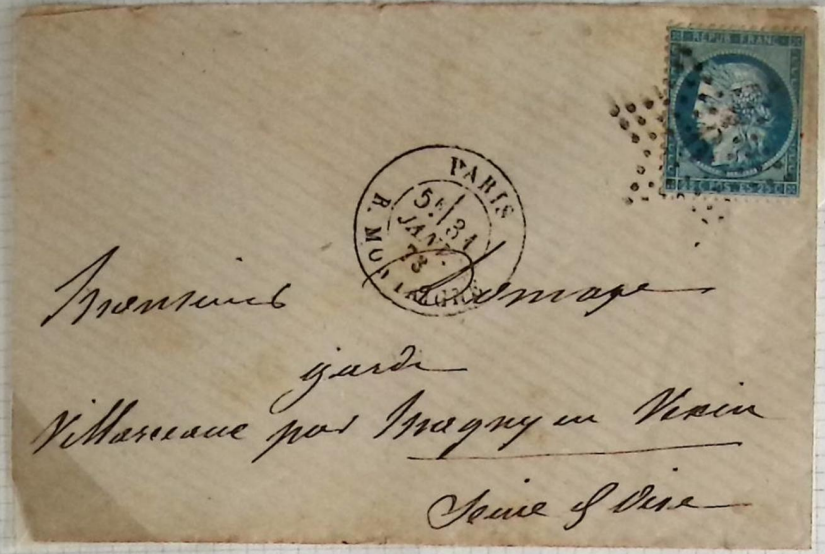 REPUB. FRANC.
25 C. POSTES 25 C.
PARIS
5E 31
JANV.
73
R. MONTAIGNE
Monsieur
garde
Villarceaux par Magny en Vexin
Seine & Oise